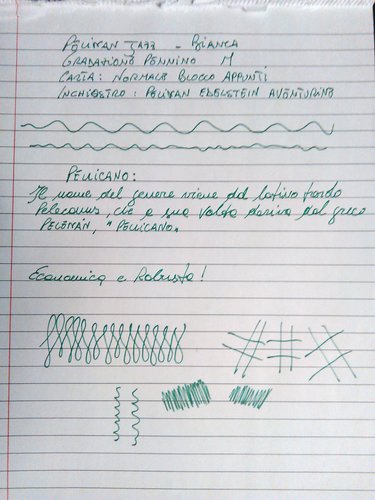 PELIKAN JAZZ - BIANCA
GRADAZIONE PENNINO M
CARTA: NORMALE BLOCCO APPUNTI
INCHIOSTRO: PELIKAN EDELSTEIN AVENTURINE
PELLICANO:
Il nome del genere viene dal latino tardo
Pelecanus, che a sua volta deriva dal greco
PELEKÁN, "PELLICANO.
Economica e Robusta!